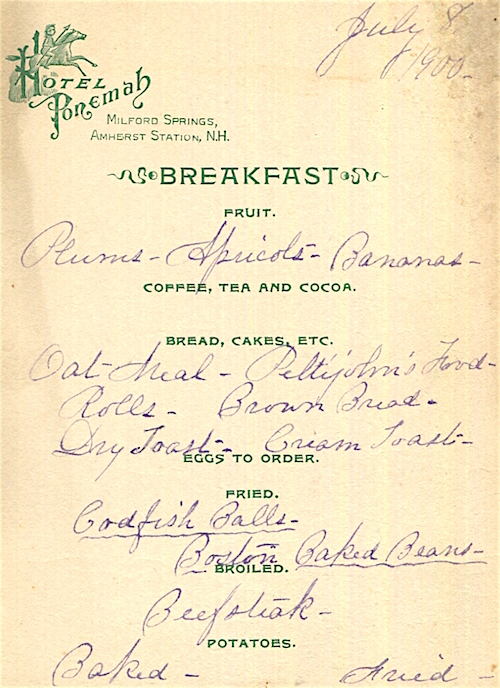 July 8
1900-
HOTEL
Ponemah
MILFORD SPRINGS,
AMHERST STATION, N.H.
BREAKFAST
FRUIT.
Plums - Apricots - Bananas -
COFFEE, TEA AND COCOA.
BREAD, CAKES, ETC.
Oat Meal - Pettijohn's Food -
Rolls - Brown Bread -
Dry Toast - Cream Toast -
EGGS TO ORDER.
FRIED.
Codfish Balls -
Boston Baked Beans -
BROILED.
Beefsteak -
POTATOES.
Baked - Fried -